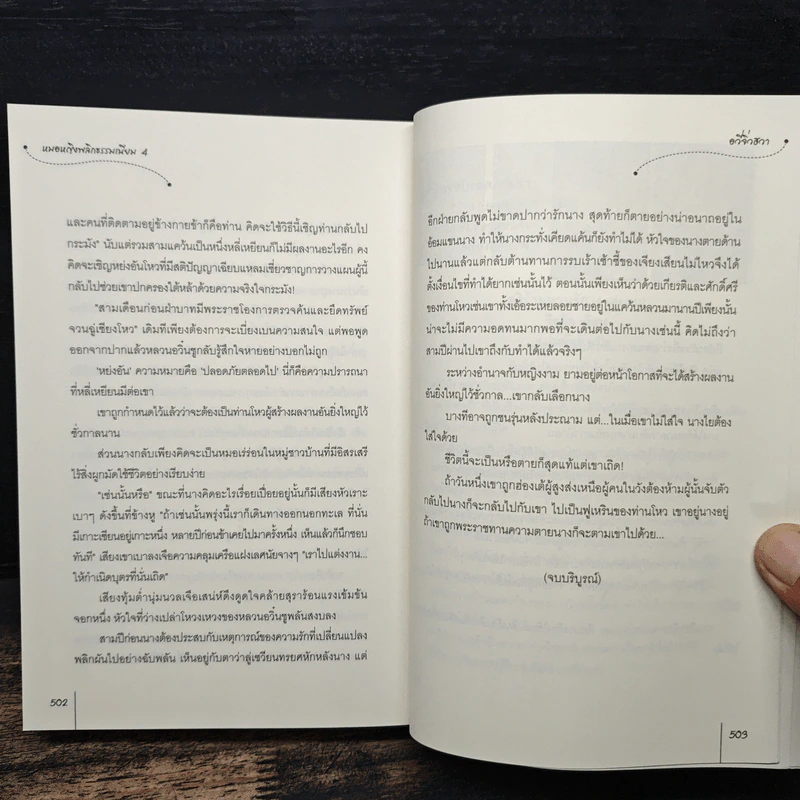 หมอหญิงพลิกธรรมเนียม 4
และคนที่ติดตามอยู่ข้างกายข้าก็คือท่าน คิดจะใช้วิธีนี้เชิญท่านกลับไป
กระมัง" นับแต่รวมสามแคว้นเป็นหนึ่งหลี่เหยียนก็ไม่มีผลงานอะไรอีก คง
คิดจะเชิญหย่งอันโหวที่มีสติปัญญาเฉียบแหลมเชี่ยวชาญการวางแผนผู้นี้
กลับไปช่วยเขาปกครองใต้หล้าด้วยความจริงใจกระมัง!
"สามเดือนก่อนฝ่าบาทมีพระราชโองการตรวจค้นและยึดทรัพย์
จวนฉู่เซียงโหว" เดิมทีเพียงต้องการจะเบี่ยงเบนความสนใจ แต่พอพูด
ออกจากปากแล้วหลวนอวิ๋นซูกลับรู้สึกใจหายอย่างบอกไม่ถูก
'หย่งอัน' ความหมายคือ 'ปลอดภัยตลอดไป' นี่ก็คือความปรารถนา
ที่หลี่เหยียนมีต่อเขา
เขาถูกกำหนดไว้แล้วว่าจะต้องเป็นท่านโหวผู้สร้างผลงานอันยิ่งใหญ่ไว้
ชั่วกาลนาน
ส่วนนางกลับเพียงคิดจะเป็นหมอเร่ร่อนในหมู่ชาวบ้านที่มีอิสรเสรี
ไร้สิ่งผูกมัดใช้ชีวิตอย่างเรียบง่าย
"เช่นนั้นหรือ" ขณะที่นางคิดอะไรเรื่อยเปื่อยอยู่นั้นก็มีเสียงหัวเราะ
เบาๆ ดังขึ้นที่ข้างหู "ถ้าเช่นนั้นพรุ่งนี้เราก็เดินทางออกนอกทะเล ที่นั่น
มีเกาะเซียนอยู่เกาะหนึ่ง หลายปีก่อนข้าเคยไปมาครั้งหนึ่ง เห็นแล้วก็นึกชอบ
ทันที" เสียงเขาเบาลงเจือความคลุมเครือแฝงเลศนัยจางๆ "เราไปแต่งงาน...
ให้กำเนิดบุตรที่นั่นเถิด"
เสียงทุ้มต่ำนุ่มนวลเจือเสน่ห์ดึงดูดใจคล้ายสุราร้อนแรงเข้มข้น
จอกหนึ่ง หัวใจที่ว่างเปล่าโหวงเหวงของหลวนอวิ๋นซูพลันสงบลง
สามปีก่อนนางต้องประสบกับเหตุการณ์ของความรักที่เปลี่ยนแปลง
พลิกผันไปอย่างฉับพลัน เห็นอยู่กับตาว่าลู่เซวียนทรยศหักหลังนาง แต่
502
อวี๋จิ่วฮวา
อีกฝ่ายกลับพูดไม่ขาดปากว่ารักนาง สุดท้ายก็ตายอย่างน่าอนาถอยู่ใน
อ้อมแขนนาง ทำให้นางกระทั่งเคียดแค้นก็ยังทำไม่ได้ หัวใจของนางตายด้าน
ไปนานแล้วแต่กลับต้านทานการรบเร้าเซ้าซี้ของเจียงเสียนไม่ไหวจึงได้
ตั้งเงื่อนไขที่ทำได้ยากเช่นนั้นไว้ ตอนนั้นเพียงเห็นว่าด้วยเกียรติและศักดิ์ศรี
ของท่านโหวเช่นเขาทั้งเอ้อระเหยลอยชายอยู่ในแคว้นหลวนมานานปีเพียงนั้น
น่าจะไม่มีความอดทนมากพอที่จะเดินต่อไปกับนางเช่นนี้ คิดไม่ถึงว่า
สามปีผ่านไปเขาถึงกับทำได้แล้วจริงๆ
ระหว่างอำนาจกับหญิงงาม ยามอยู่ต่อหน้าโอกาสที่จะได้สร้างผลงาน
อันยิ่งใหญ่ไว้ชั่วกาล...เขากลับเลือกนาง
บางทีอาจถูกชนรุ่นหลังประณาม แต่...ในเมื่อเขาไม่ใส่ใจ นางไยต้อง
ใส่ใจด้วย
ชีวิตนี้จะเป็นหรือตายก็สุดแท้แต่เขาเถิด!
ถ้าวันหนึ่งเขาถูกฮ่องเต้ผู้สูงส่งเหนือผู้คนในวังต้องห้ามผู้นั้นจับตัว
กลับไปนางก็จะกลับไปกับเขา ไปเป็นฟูเหรินของท่านโหว เขาอยู่นางอยู่
ถ้าเขาถูกพระราชทานความตายนางก็จะตามเขาไปด้วย...
(จบบริบูรณ์)
503